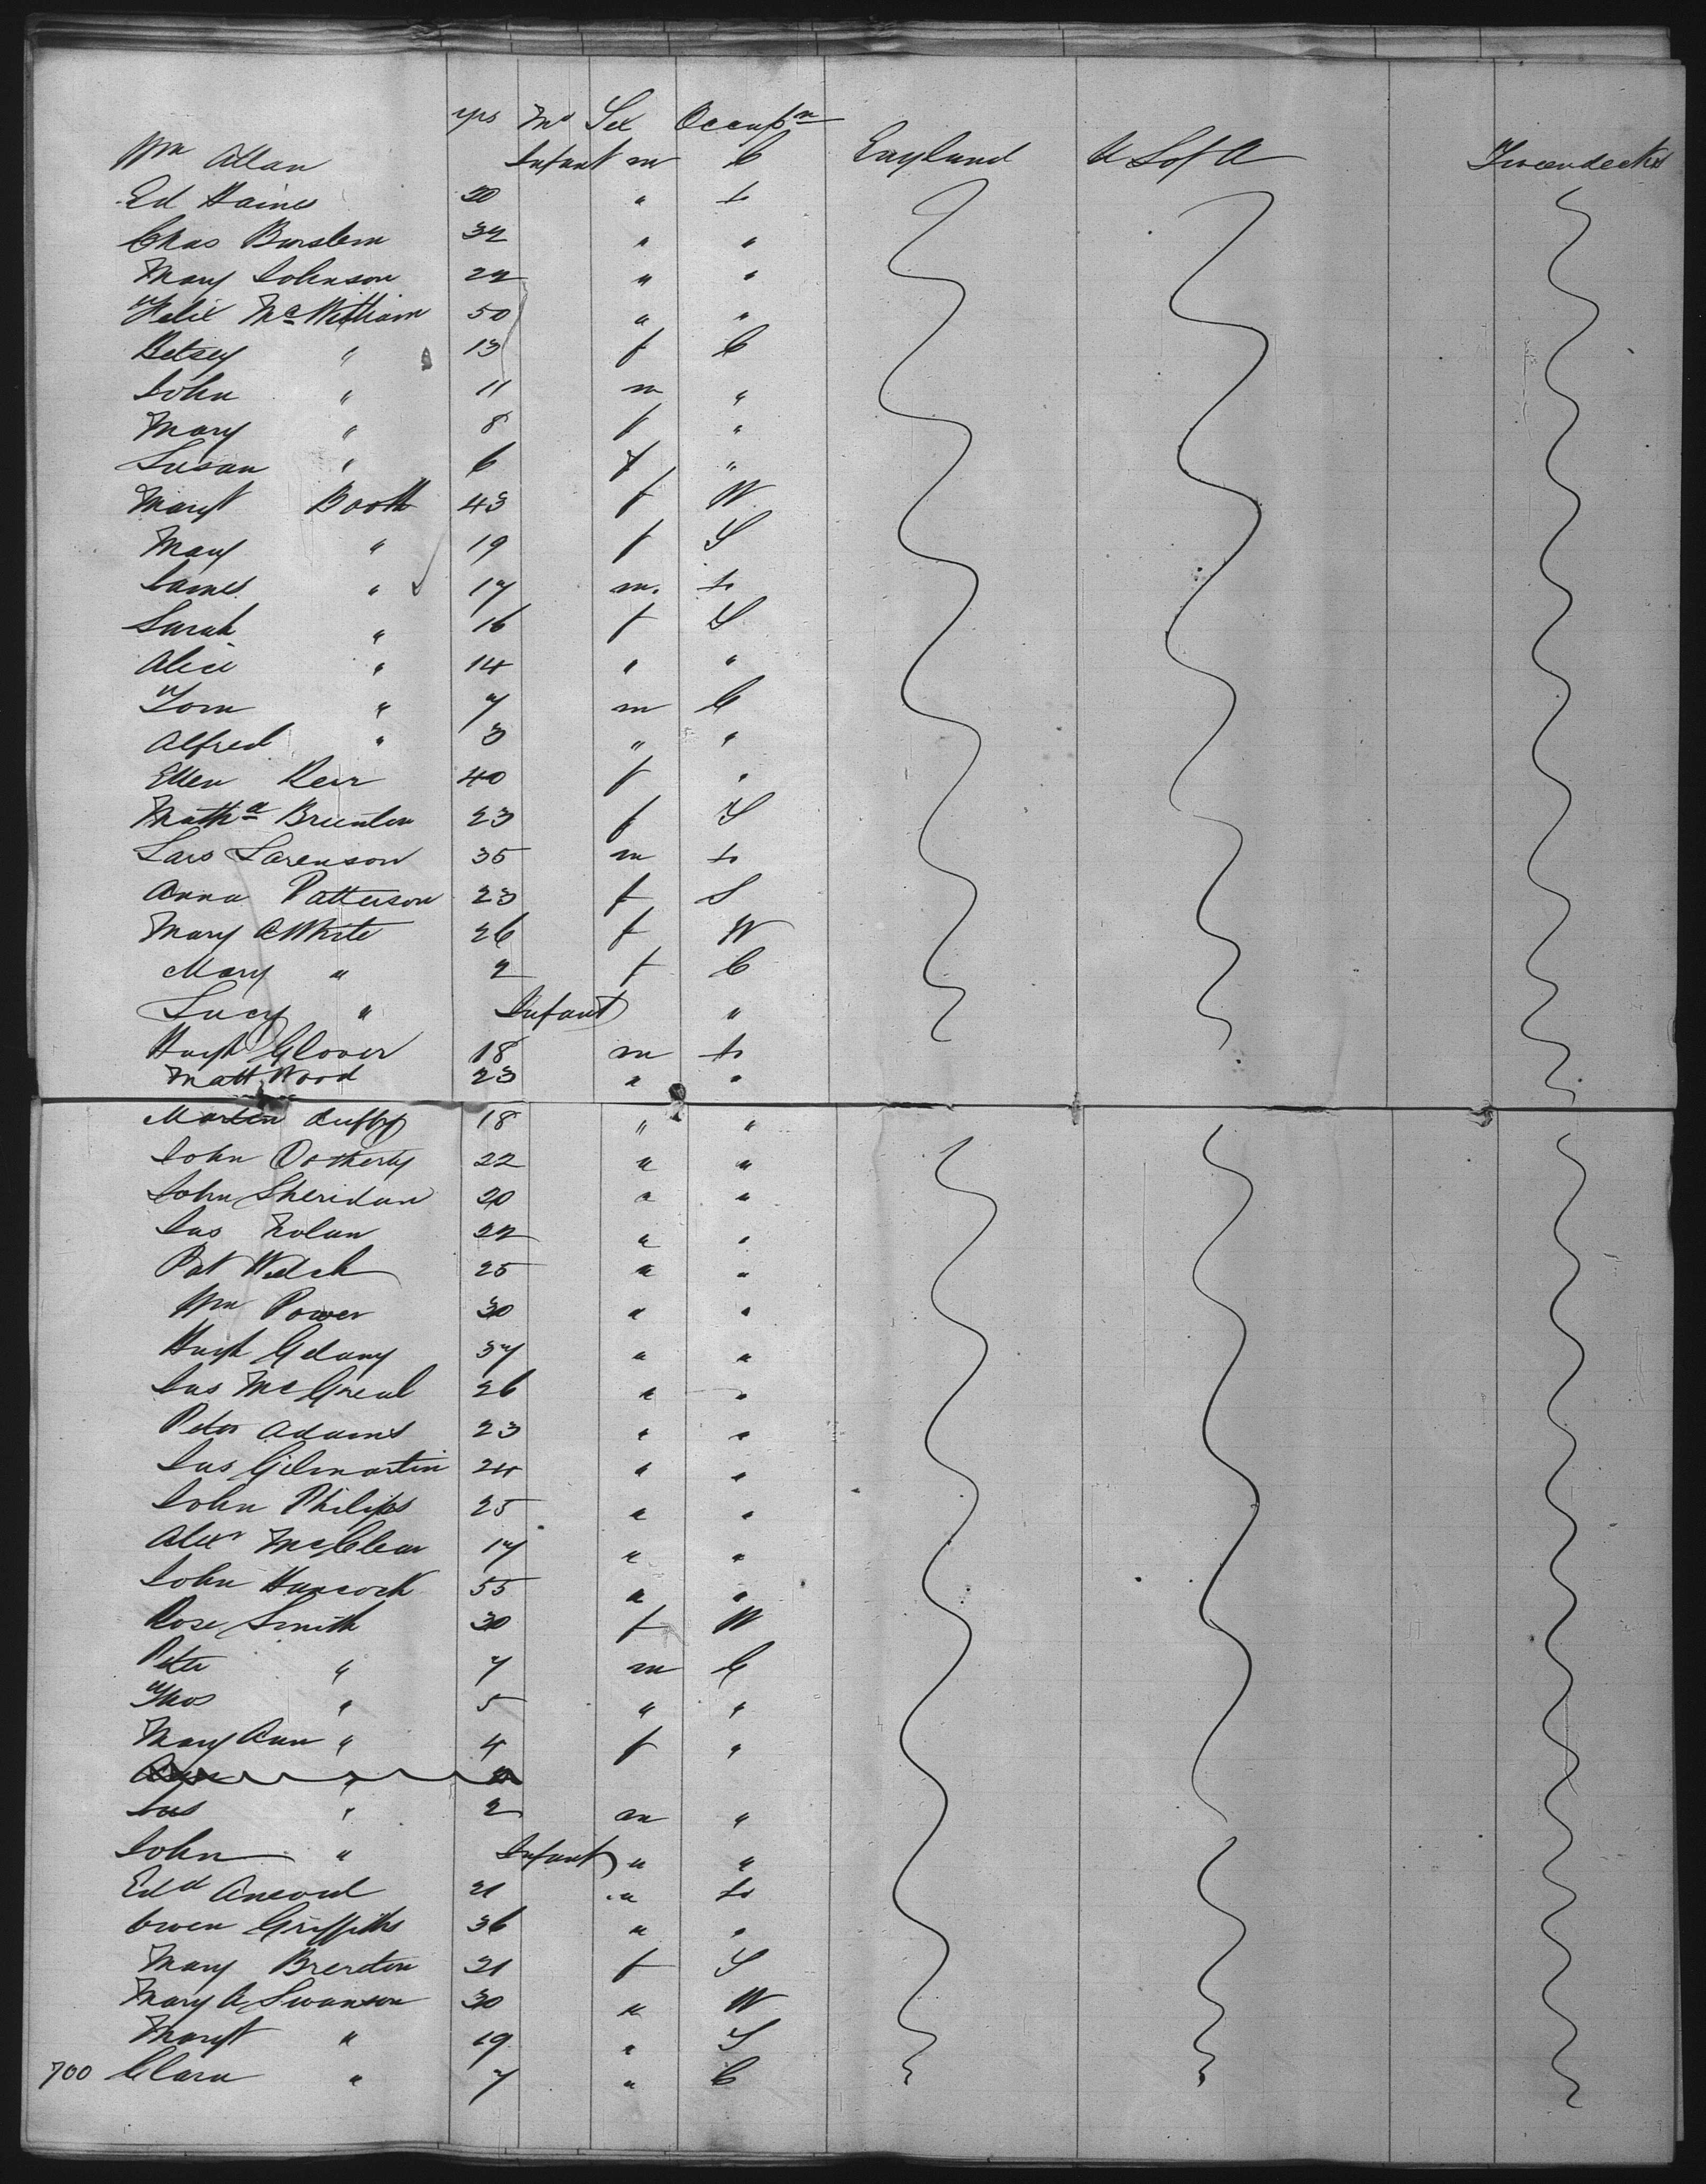 yrs Ms Sex Occupn
Wm Allan Infant m C England U S of A Tweendecks
Ed Haines 20 " Lr
Chas Burslem 32 " "
Mary Johnson 22 " "
Felix McWilliam 50 " "
Betsey " 13 f C
John " 11 m "
Mary " 8 f "
Susan " 6 f "
Margt Booth 43 f W
Mary " 19 f S
James " 17 m. Lr
Sarah " 16 f S
Alice " 14 " "
Tom " 7 m C
Alfred " 3 " "
Ellen Kerr 40 f "
Martha Brunton 23 f S
Lars Sorenson 35 m Lr
Anna Patterson 23 f S
Mary A White 26 f W
Mary " 2 f C
Lucy " Infant "
Hugh Glover 18 m Lr
Matt Wood 23 " "
Martin Duffy 18 " "
John Dotherty 22 " "
John Sheridan 20 " "
Jas Nolan 22 " "
Pat Welch 25 " "
Wm Power 30 " "
Hugh Gelany 37 " "
Jas McGreal 26 " "
Peter Adams 23 " "
Jas Gilmartin 24 " "
John Philips 25 " "
Alexr McClean 17 " "
John Hancock 55 " "
Rose Smith 30 f W
Peter " 7 m C
Thos " 5 " "
Mary Ann " 4 f "
Jas " 2 m "
John " Infant " "
Edd 21 " Lr
Owen Griffiths 36 " "
Mary Brereton 21 f S
Mary A Swanson 30 " W
Margt " 19 " S
700 Clara " 7 " C